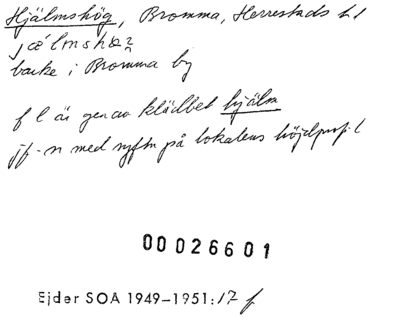 Hjälmshög, Bromma, Herrestads hd
backe i Bromma by
f l är genav klädbet hjälm
jfr n med syftn på lokalens höjdprofil
00026601
Ejder SOA 1949–1951:17 f